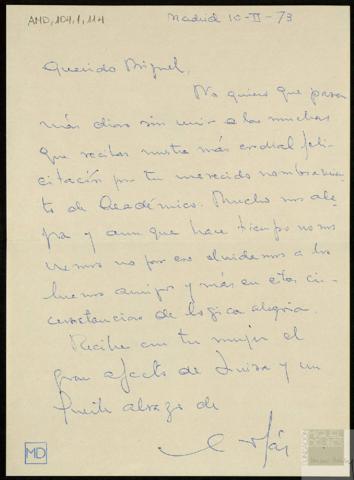 AMD,104,1,114
Madrid 10-II-73
Querido Miguel,
No quiero que pasen
más días sin unir a las muchas
que recibas nuestra más cordial feli-
citación por tu merecido nombramien-
to de Académico. Mucho nos ale-
gra y aunque hace tiempo no nos
vemos no por eso olvidamos a los
buenos amigos y más en estas cir-
cunstancias de lógica alegría.
Recibe con tu mujer el
gran afecto de Luisa y un
fuerte abrazo de
MD